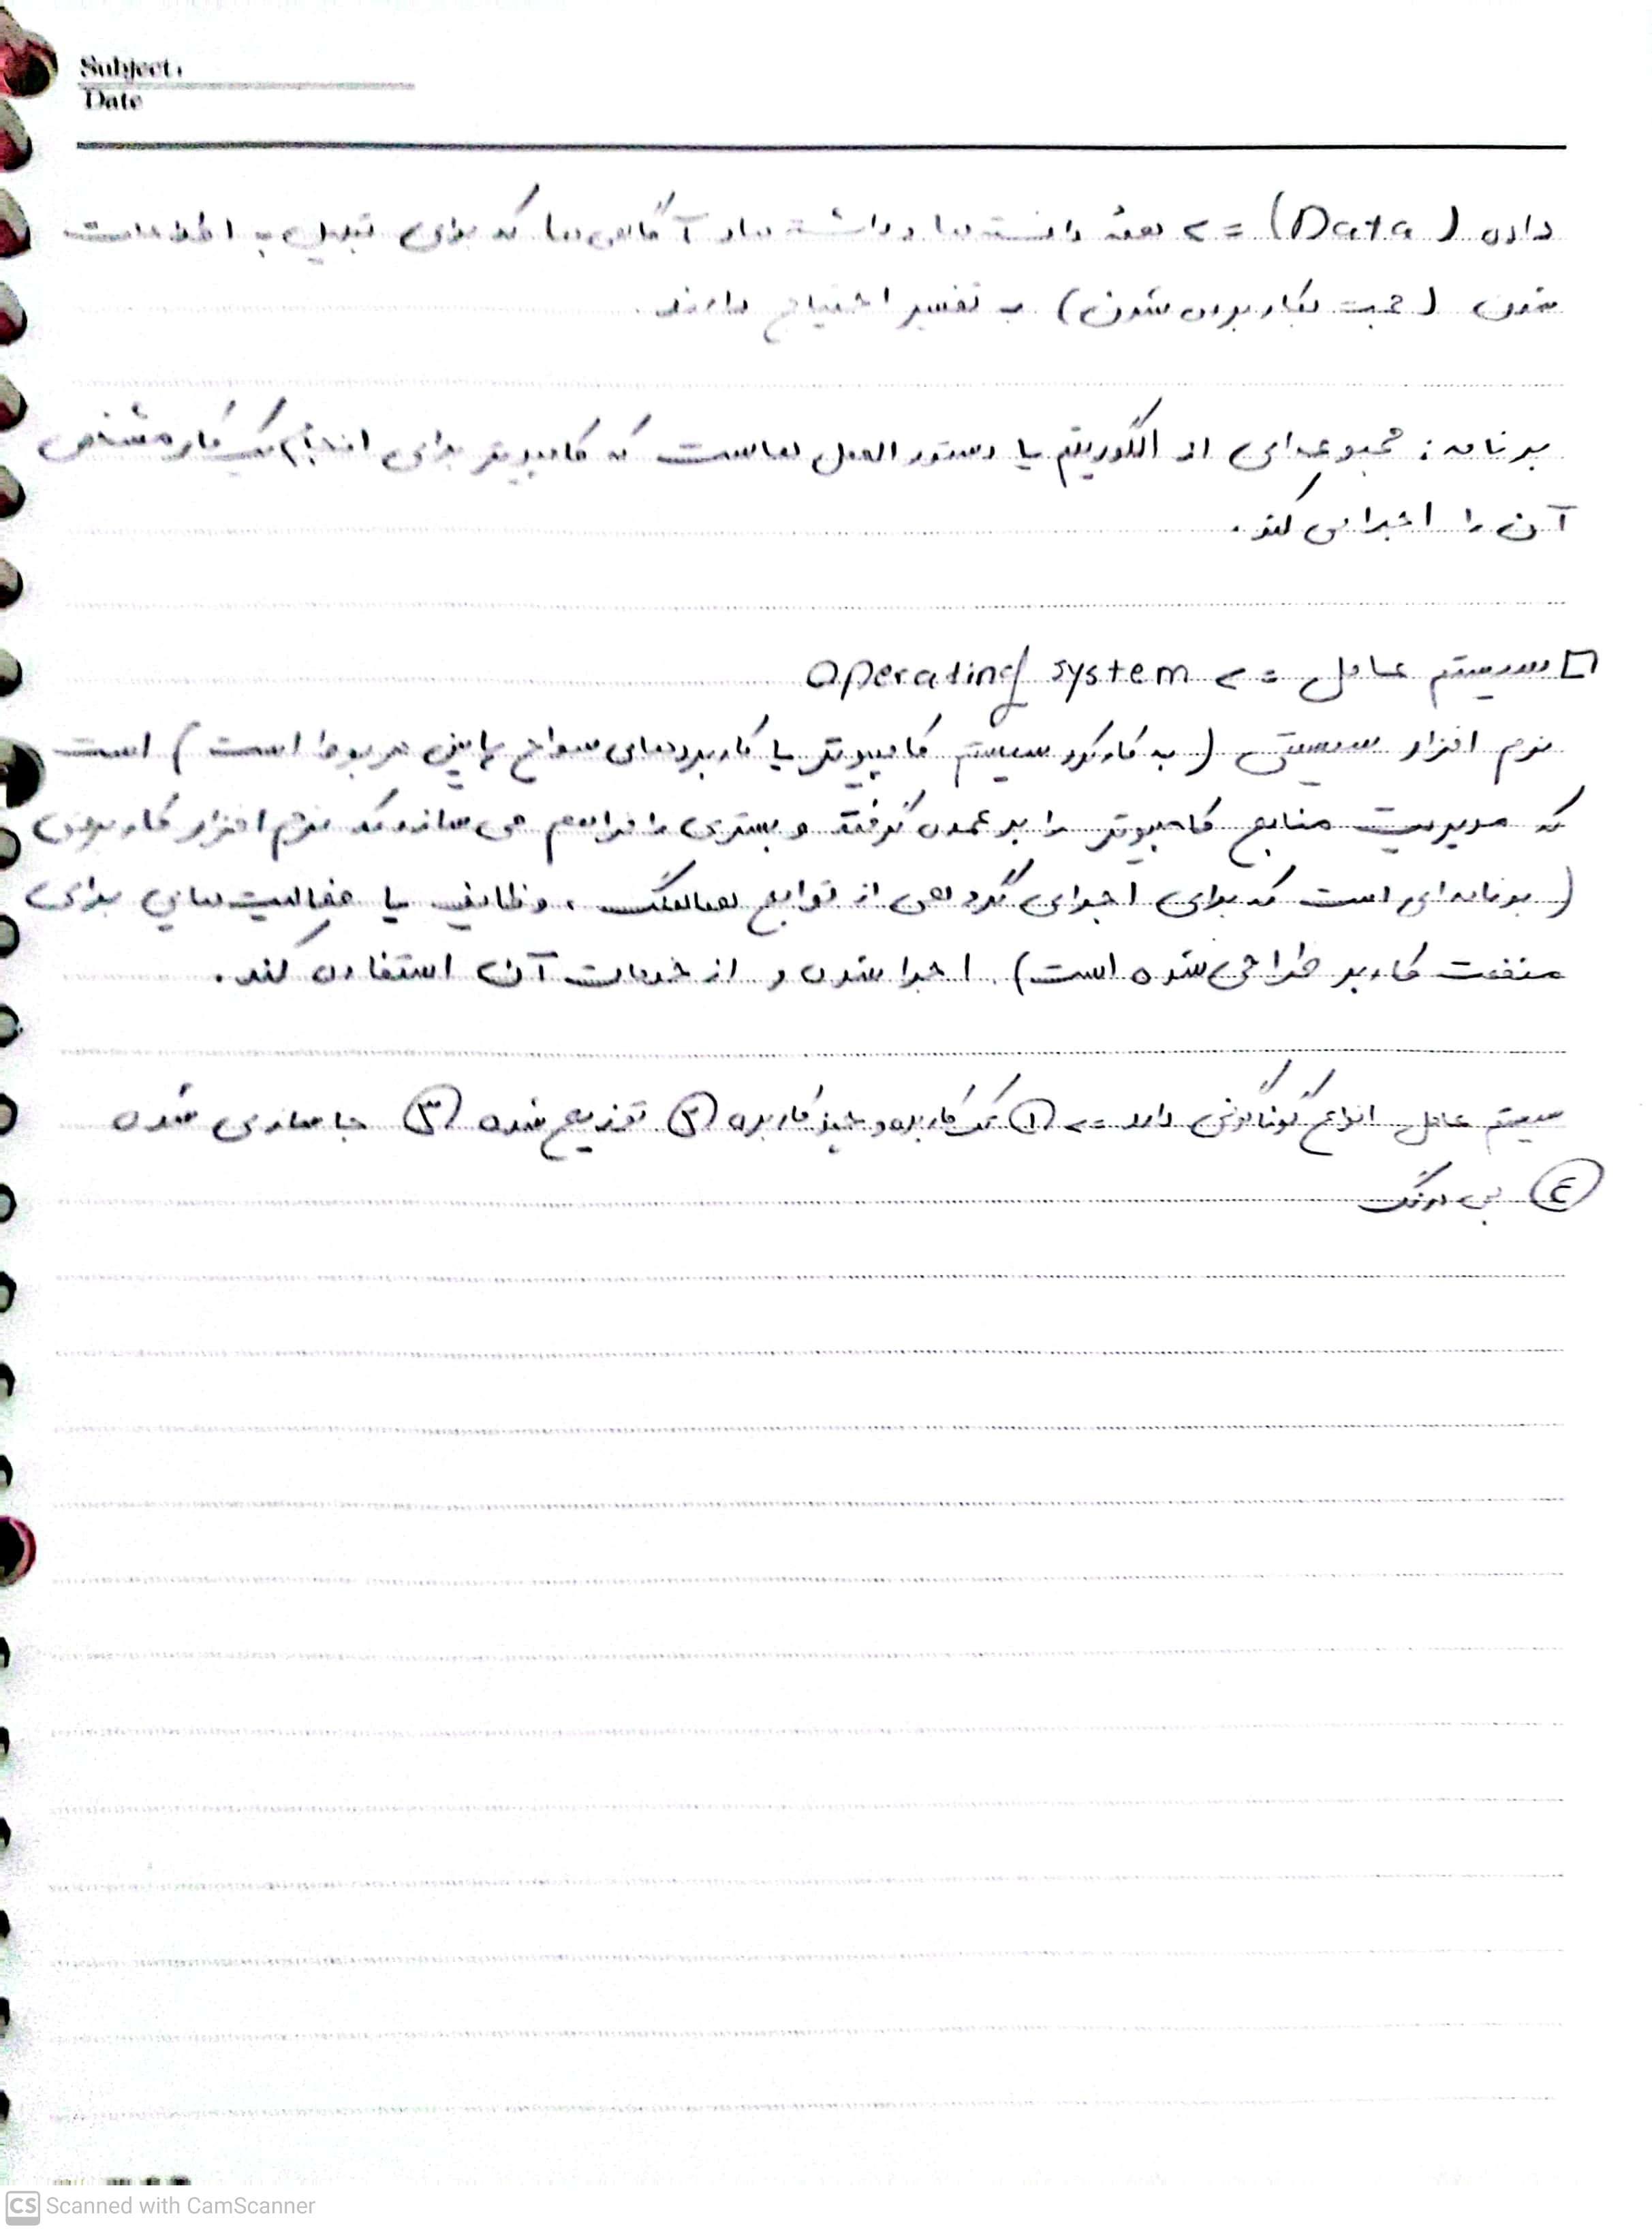 Subject:
Date
داده (Data) => همهٔ دانسته‌ها و داشته‌ها و آگاهی‌ها که برای تبدیل به اطلاعات
شدن (جهت بکار برده شدن) به تفسیر احتیاج دارند.
برنامه: مجموعه‌ای از الگوریتم یا دستورالعمل‌هاست که کامپیوتر برای انجام یک کار مشخص
آن را اجرا می‌کند.
□ سیستم عامل => Operating system
نرم افزار سیستمی (به کارکرد سیستم کامپیوتر یا کاربردهای سطوح پایین مربوط است) است
که مدیریت منابع کامپیوتر را بر عهده گرفته و بستری را فراهم می سازد که نرم افزار کاربردی
(برنامه‌ای است که برای اجرای گروهی از توابع هماهنگ، وظایف یا فعالیت‌هایی برای
منفعت کاربر طراحی شده است) اجرا شده و از خدمات آن استفاده کند.
سیستم عامل انواع گوناگونی دارد => ① تک کاربره و چند کاربره ② توزیع شده ③ جاسازی شده
④ بی درنگ
CS Scanned with CamScanner